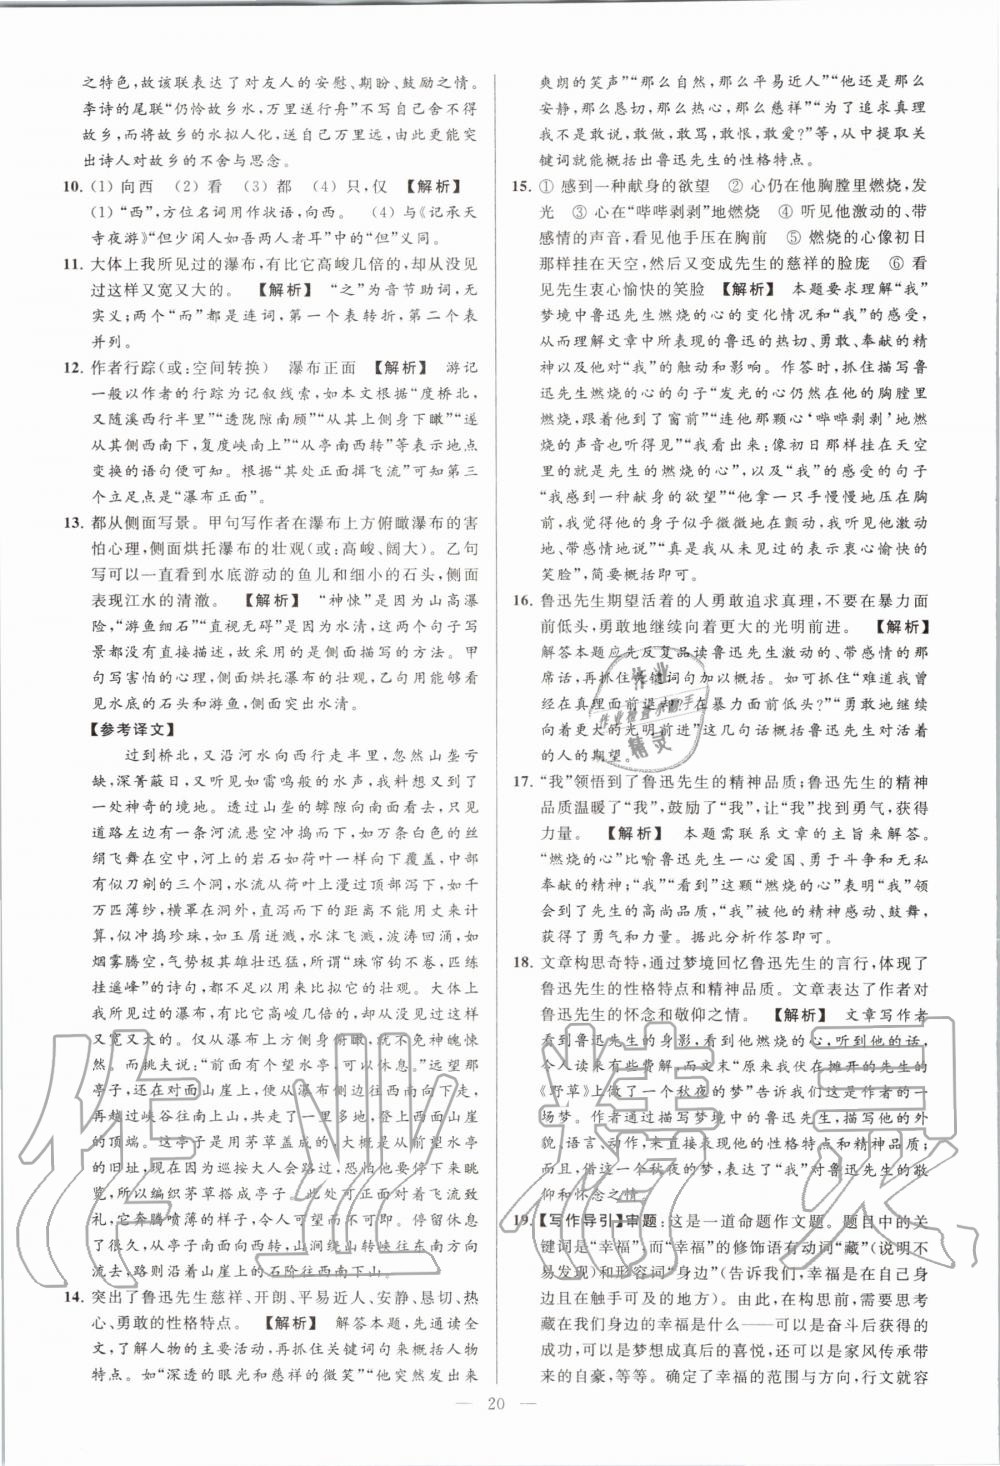 之特色,故该联表达了对友人的安慰、期盼、鼓励之情。
李诗的尾联“仍怜故乡水,万里送行舟”不写自己舍不得
故乡,而将故乡的水拟人化,送自己万里远行,由此更能突
出诗人对故乡的不舍与思念。
10. (1) 向西 (2) 看 (3) 都 (4) 只,仅 【解析】
(1)“西”,方位名词用作状语,向西。 (4) 与《记承天
寺夜游》“但少闲人如吾两人者耳”中的“但”义同。
11. 大体上我所见过的瀑布,有比它高峻几倍的,却从没见
过这样又宽又大的。 【解析】 “之”为音节助词,无
实义;两个“而”都是连词,第一个表转折,第二个表
并列。
12. 作者行踪(或:空间转换) 瀑布正面 【解析】 游记
一般以作者的行踪为记叙线索,如本文根据“度桥北,
又随溪西行半里”“透陇隙南顾”“从其上侧身下瞰”“又
从其侧西南下,复度峡南上”“从亭南西转”等表示地点
变换的语句便可知。根据“其处正面揖飞流”可知第三
个立足点是“瀑布正面”。
13. 都从侧面写景。甲句写作者在瀑布上方俯瞰瀑布的害
怕心理,侧面烘托瀑布的壮观(或:高峻、阔大)。乙句
写可以一直看到水底游动的鱼儿和细小的石头,侧面
表现江水的清澈。 【解析】 “神悚”是因为山高瀑
险,“游鱼细石”“直视无碍”是因为水清,这两个句子写
景没有直接描述,故采用的是侧面描写的方法。甲
句写害怕的心理,侧面烘托瀑布的壮观,乙句用能看见
水底的石头和游鱼,侧面烘托水清。
【参考译文】
过到桥北,又沿河水向西行走半里,忽然山垄亏
缺,深箐蔽日,又听见如雷鸣般的水声,我料想又到了
一处神奇的境地。透过山垄的罅隙向南看去,只见
道路左边有一条河流悬空冲捣而下,如万条白色的丝
绢飞舞在空中,河上的岩石如荷叶一样向下覆盖,中间
有似刀剜的三个洞,水流从荷叶上漫过顶部泻下,如千
万匹薄纱,横罩在洞外,直泻而下的距离不能用丈来计
算,似冲捣珍珠,如玉屑迸溅,水沫飞溅,波涛上涌,如
烟雾腾空,气势极其雄壮迅猛,所谓“珠帘钩不卷,匹练
挂遥峰”的诗句,都不能用来比拟它的壮观。大体上我
所见过的瀑布,有比它高峻几倍的,却从没见过这样
又宽又大的,只从它的上面侧身下看,就不免神魂惊
悚。而挑夫说:“前面有个望水亭,可以休息。”远望那
亭子,还在对面山崖上,从瀑布侧面往西南向下走,
再越过峡谷往南上山,共走了一里多地,登上西面山崖
的顶端。这亭子是用茅草盖成的,大概是从前望水亭
的旧址,现在因为巡按大人会路过,到此眺望
览,所以编织茅草搭成亭子。此处正对着飞流致
礼,它奔腾喷薄的样子,令人可望而不可即。停留休息
了很久,从亭子南面向西转,山涧绕山往东南方向
流去,路则沿着山崖上的石阶往西南下山。
14. 突出了鲁迅先生慈祥、开朗、平易近人、安静、恳切、热
心、勇敢的性格特点。 【解析】 解答本题,先通读全
文,了解人物的主要活动,抓住关键词句来概括人物
特点。如“深邃的眼光和慈祥的微笑”“他突然发出来
爽朗的笑声”“那么自然,那么平易近人”“他还是那么
安静,那么恳切,那么热心,那么慈祥”“为了追求真理
我不是敢说,敢做,敢骂,敢恨,敢爱?”等,从中提取关
键词就能概括出鲁迅先生的性格特点。
15. ① 感到一种献身的欲望 ② 心仍在他胸膛里燃烧,发
光 ③ 心在“哔哔剥剥”地燃烧 ④ 听见他激动的、带
感情的声音,看见他手压在胸前 ⑤ 燃烧的心像初日
那样挂在天空,然后又变成先生的慈祥的脸庞 ⑥ 看
见先生衷心愉快的笑脸 【解析】 本题要求理解“我”
梦境中鲁迅先生燃烧的心的变化情况和“我”的感受,
从而理解文章中所表现的鲁迅的热切、勇敢、奉献的精
神以及他对“我”的触动和影响。作答时,抓住描写鲁
迅先生燃烧的心的句子“发光的心仍然在他的胸膛里
燃烧,跟着他到了窗前”“连他那颗心‘哔哔剥剥’的燃
烧的声音也听得见”“我看出来:像初日那样挂在天空
里的就是先生的燃烧的心”,以及“我”的感受的句子
“我感到一种献身的欲望”“他拿一只手慢慢地压在胸
前,我觉得他的身子似乎微微地在颤动,我听见他激动
地、带感情地说”“真是我从未见过的表示衷心愉快的
笑脸”,简要概括即可。
16. 鲁迅先生期望活着的人勇敢追求真理,不要在暴力面
前低头,勇敢地继续向着更大的光明前进。 【解析】
解答本题应先反复品读鲁迅先生激动的、带感情的那
席话,再抓住关键词句加以概括。如可抓住“难道我曾
经在真理面前退却?在暴力面前低头?”“勇敢地继续
向着更大的光明前进”这几句话概括出鲁迅先生对活着
的人的期望。
17. “我”领悟到了鲁迅先生的精神品质;鲁迅先生的精神
品质温暖了“我”,鼓励了“我”,让“我”找到勇气,获得
力量。 【解析】 本题需联系文章的主旨来解答。
“燃烧的心”比喻鲁迅先生一心爱国、勇于斗争和无私
奉献的精神;“我”“看到”这颗“燃烧的心”表明“我”领
会到了先生的高尚品质,“我”被他的精神感动、鼓舞,
获得了勇气和力量。据此分析作答即可。
18. 文章构思奇特,通过梦境回忆鲁迅先生的言行,体现了
鲁迅先生的性格特点和精神品质。文章表达了作者对
鲁迅先生的怀念和敬仰之情。 【解析】 文章写作者
看到鲁迅先生的身影,看到他燃烧的心,听到他的话,
令人读来有些费解,而文末“原来我伏在摊开的先生的
《野草》上做了一个秋夜的梦”告诉我们这是作者的一
场梦。作者通过描写梦境中的鲁迅先生,描写他的外
貌、语言、动作,来表现他的性格特点和精神品质,
而且,借这一个秋夜的梦,表达了“我”对鲁迅先生的敬
仰和怀念之情。
19. 【写作导引】审题:这是一道命题作文题。题目中的关
键词是“幸福”,而“幸福”的修饰语有动词“藏”(说明不
易发现)和形容词“身边”(告诉我们,幸福是在自己身
边且在触手可及的地方)。由此,在构思前,需要思考
藏在我们身边的幸福是什么——可以是奋斗后获得的
成功,可以是梦想成真后的喜悦,还可以是家风传承带
来的自豪,等等。确定了幸福的范围与方向,行文就容
— 20 —
作业精灵
作业
作业检查小助手
精灵